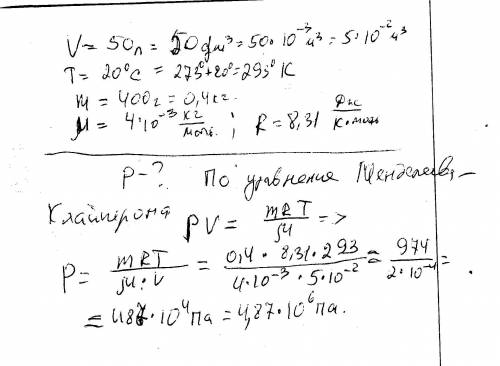 V = 50л = 50 дм³ = 50·10⁻³ м³ = 5·10⁻² м³
T = 20°C = 273°+20° = 293° K
m = 400г = 0,4 кг.
μ = 4·10⁻³ кг/моль ; R = 8,31 Дж/К·моль
P - ? По уравнение Менделеева-
Клайперона PV = mRT/μ =>
P = mRT/μ·V = 0,4·8,31·293/4·10⁻³·5·10⁻² = 974/2·10⁻⁴ =
= 487·10⁴ Па = 4,87·10⁶ Па.